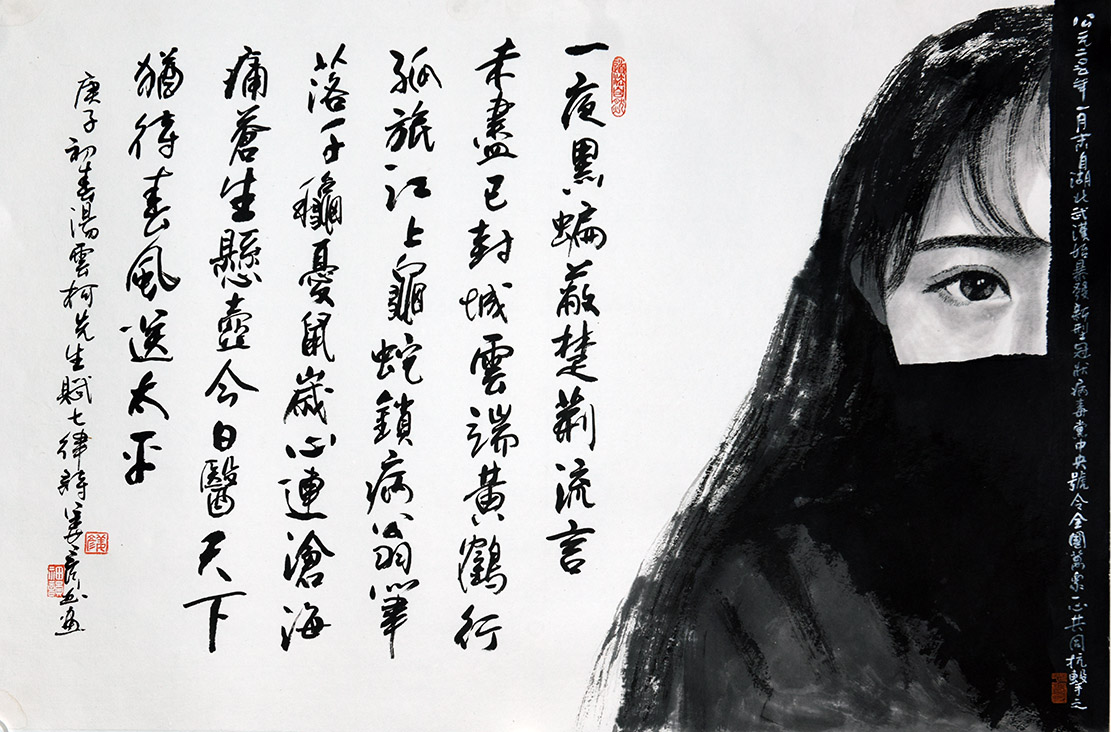 公元二〇二〇年一月末自湖北武漢始暴發新型冠狀病毒黨中央號令全國萬眾一心共同抗擊之
一夜黑蝙蔽楚荊流言
未盡已封城雲端黃鶴行
孤旅江上龜蛇鎖病翁筆
落千龝憂鼠歲心連滄海
痛蒼生懸壺今日醫天下
猶待春風送太平
庚子初春湯雲柯先生賦七律詩姜